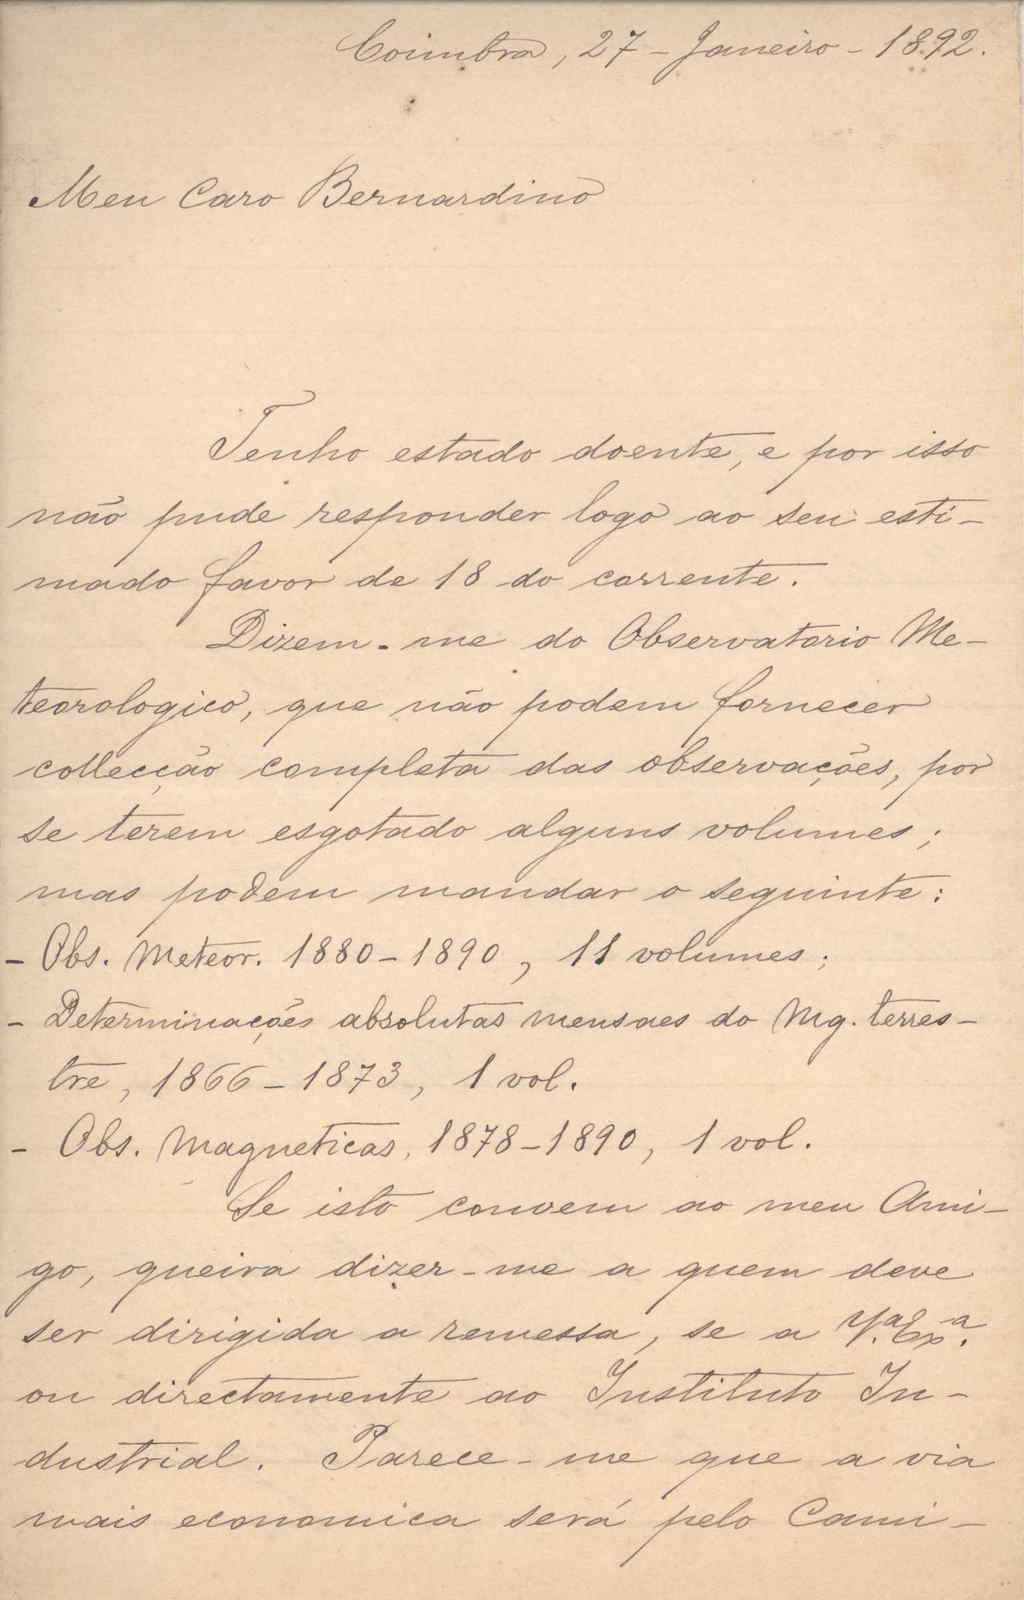 Coimbra, 27 - Janeiro - 1892.
Meu Caro Bernardino
Tenho estado doente, e por isso
não pude responder logo ao seu esti-
mado favor de 18 do corrente.
Dizem-me do Observatorio Me-
teorologico, que não podem fornecer
collecção completa das observações, por
se terem esgotado alguns volumes;
mas podem mandar o seguinte:
- Obs. Meteor. 1880-1890, 11 volumes;
- Determinações absolutas mensaes do Mg. terres-
tre, 1866-1873, 1 vol.
- Obs. Magneticas, 1878-1890, 1 vol.
Se isto convem ao meu Ami-
go, queira dizer-me a quem deve
ser dirigida a remessa, se a V.ª Ex.ª
ou directamente ao Instituto In-
dustrial. Parece-me que a via
mais economica será pelo Cami-